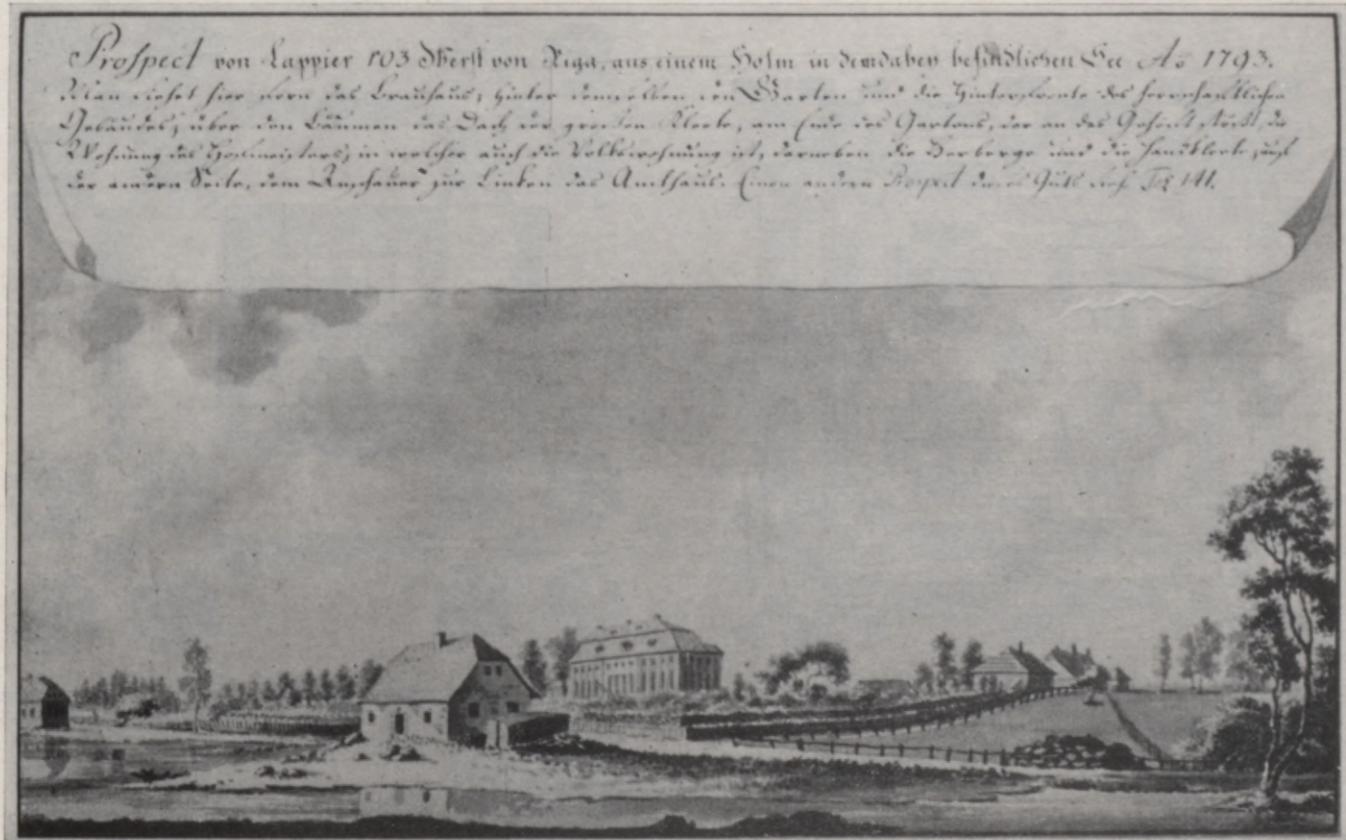 Prospect von Lappier 103 Werst von Riga, aus einem Holm in dem dabey befindlichen See Ao 1793.
Man siehet hier vorn das Brauhaus, hinter demselben den Garten und die Hinterfronte des herrschaftlichen
Gebäudes, über den Bäumen das Dach der großen Kleete, am Ende des Gartens, der an das Gehöft stößt, die
Wohnung des Hofmeisters, in welcher auch die Volkswohnung ist, darneben die Herberge und die Handkleete, auf
der andern Seite, dem Anschauer zur Linken das Amthaus. Einen andern Prospect dieses Guts sieh. 141.